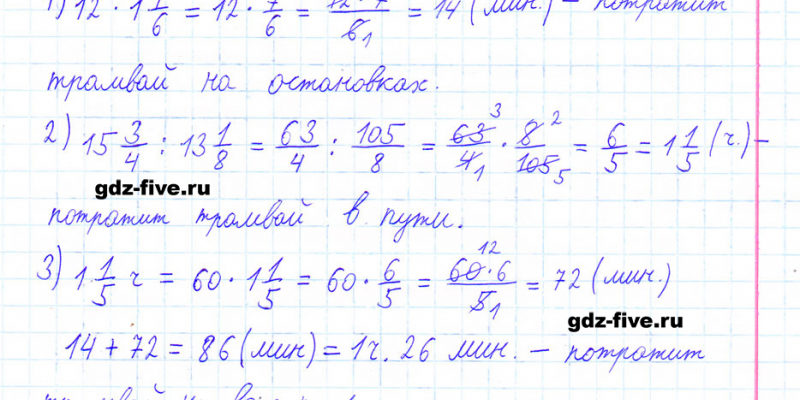 1) 12 · 1 1/6 = 12 · 7/6 = 12 · 7/6 1 = 14 (мин.) – потратит
трамвай на остановках.
2) 15 3/4 : 13 1/8 = 63/4 : 105/8 = 63 3/4 1 · 8 2/105 5 = 6/5 = 1 1/5 (ч.) –
gdz-five.ru
потратит трамвай в пути.
3) 1 1/5 ч = 60 · 1 1/5 = 60 · 6/5 = 60 12 · 6/5 1 = 72 (мин.)
gdz-five.ru
14 + 72 = 86 (мин) = 1 ч. 26 мин. – потратит